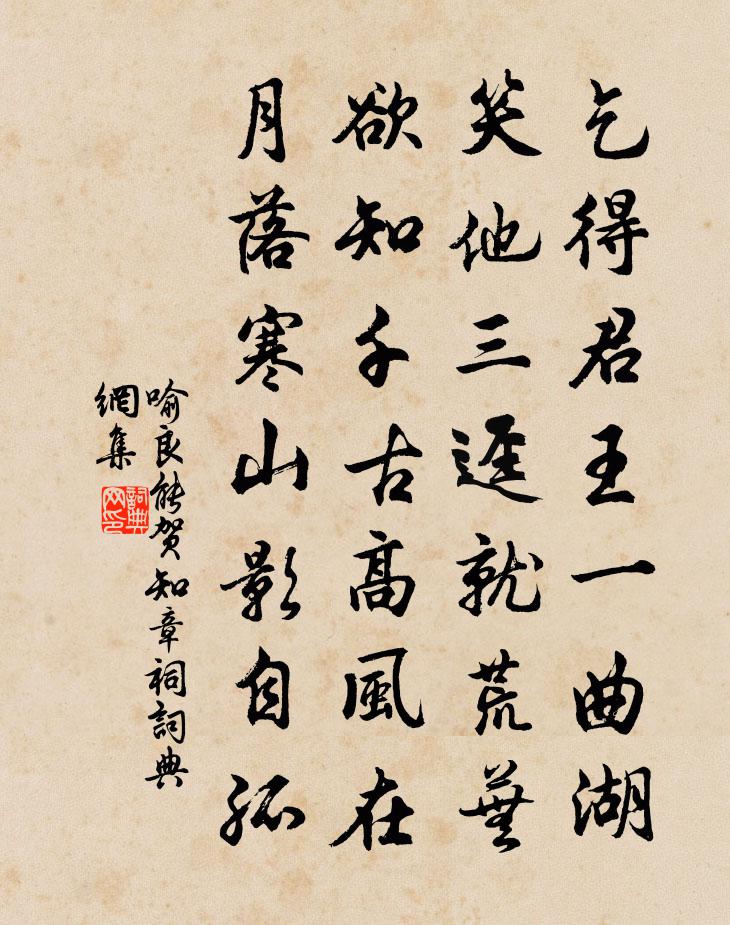 乞得君王一曲湖
笑他三逕就荒蕪
欲知千古高風在
月落寒山影自孤
喻良能賀知章祠詞典
網集
詞典網印